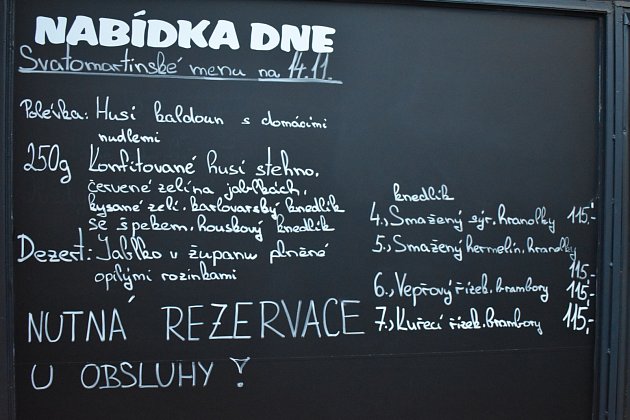 NABÍDKA DNE
Svatomartinské menu na 14.11.
Polévka: Husí kaldoun s domácími
nudlemi
250g Konfitované husí stehno,
červené zelí na jablkách,
kysané zelí, karlovarský knedlík
se špekem, houskový knedlík
Dezert: Jablko v županu plněné
opilými rozinkami
NUTNÁ REZERVACE
U OBSLUHY !
knedlík
4., Smažený sýr, hranolky 115,-
5., Smažený hermelín, hranolky
115,-
6., Vepřový řízek, brambory 115,-
7., Kuřecí řízek, brambory 115,-